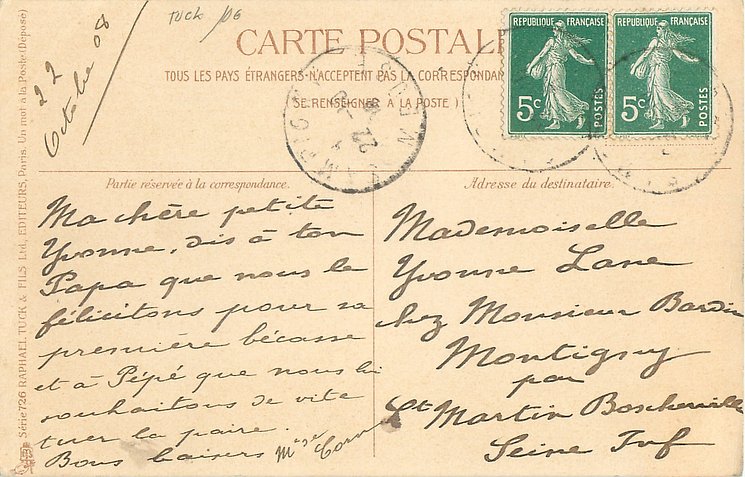 TUCK /06
22
Octobre 08
CARTE POSTALE
TOUS LES PAYS ÉTRANGERS N'ACCEPTENT PAS LA CORRESPONDAN
SE RENSEIGNER À LA POSTE )
RÉPUBLIQUE FRANÇAISE
5c
POSTES
RÉPUBLIQUE FRANÇAISE
5c
POSTES
22
Partie réservée à la correspondance.
Adresse du destinataire.
Ma chère petite
Yvonne, dis à ton
Papa que nous le
félicitons pour sa
première bécasse
et à Pépé que nous lui
souhaitons de vite
tuer la paire.
Bons baisers
Mademoiselle
Yvonne Lane
chez Monsieur Bardin
Montigny
par
St Martin Boscherville
Seine Inf
Série 726 RAPHAEL TUCK & FILS Ltd, EDITEURS, Paris. Un mot à la Poste (Déposé)